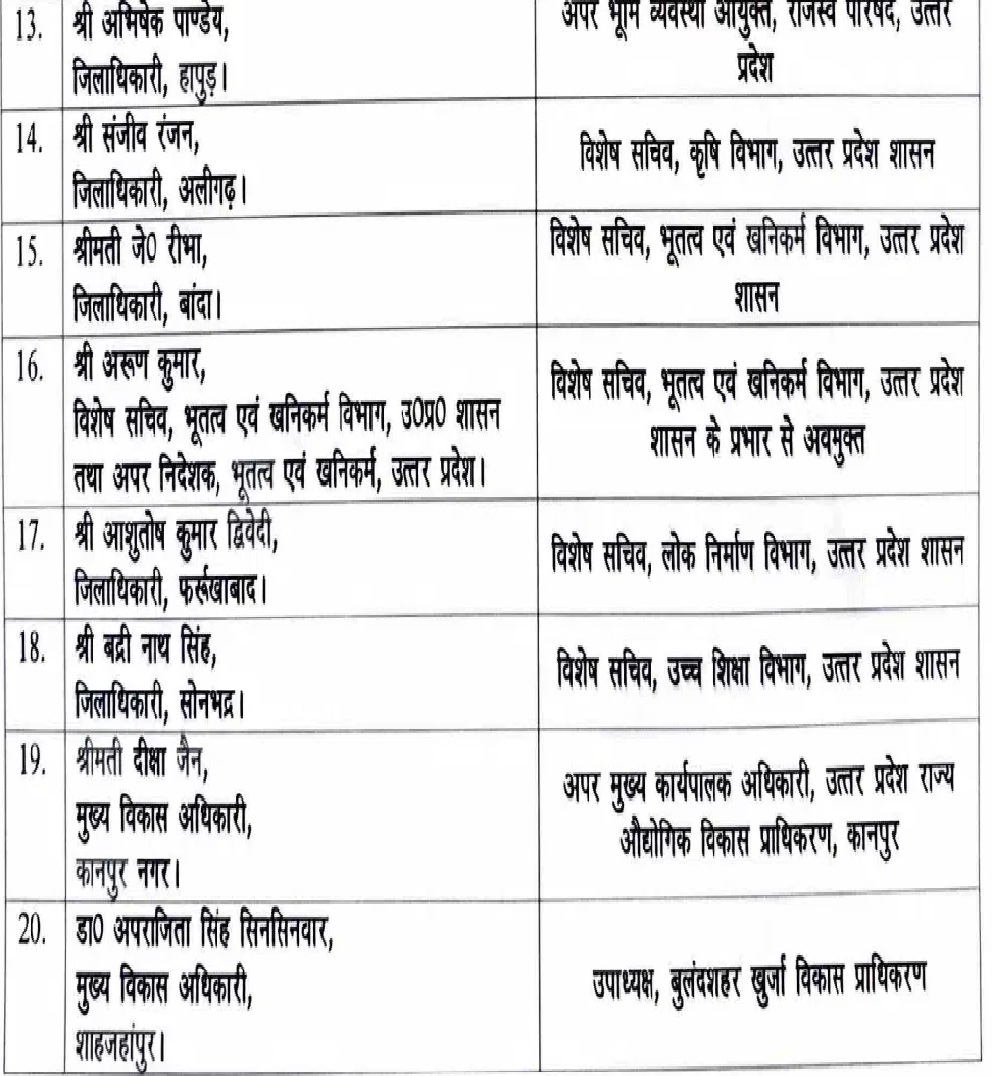 13.
श्री अभिषेक पाण्डेय,
जिलाधिकारी, हापुड़।
अपर भूमि व्यवस्था आयुक्त, राजस्व परिषद, उत्तर
प्रदेश
14.
श्री संजीव रंजन,
जिलाधिकारी, अलीगढ़।
विशेष सचिव, कृषि विभाग, उत्तर प्रदेश शासन
15.
श्रीमती जे0 रीभा,
जिलाधिकारी, बांदा।
विशेष सचिव, भूतत्व एवं खनिकर्म विभाग, उत्तर प्रदेश
शासन
16.
श्री अरूण कुमार,
विशेष सचिव, भूतत्व एवं खनिकर्म विभाग, उ0प्र0 शासन
तथा अपर निदेशक, भूतत्व एवं खनिकर्म, उत्तर प्रदेश।
विशेष सचिव, भूतत्व एवं खनिकर्म विभाग, उत्तर प्रदेश
शासन के प्रभार से अवमुक्त
17.
श्री आशुतोष कुमार द्विवेदी,
जिलाधिकारी, फर्रूखाबाद।
विशेष सचिव, लोक निर्माण विभाग, उत्तर प्रदेश शासन
18.
श्री बद्री नाथ सिंह,
जिलाधिकारी, सोनभद्र।
विशेष सचिव, उच्च शिक्षा विभाग, उत्तर प्रदेश शासन
19.
श्रीमती दीक्षा जैन,
मुख्य विकास अधिकारी,
कानपुर नगर।
अपर मुख्य कार्यपालक अधिकारी, उत्तर प्रदेश राज्य
औद्योगिक विकास प्राधिकरण, कानपुर
20.
डा0 अपराजिता सिंह सिनसिनवार,
मुख्य विकास अधिकारी,
शाहजहांपुर।
उपाध्यक्ष, बुलंदशहर खुर्जा विकास प्राधिकरण